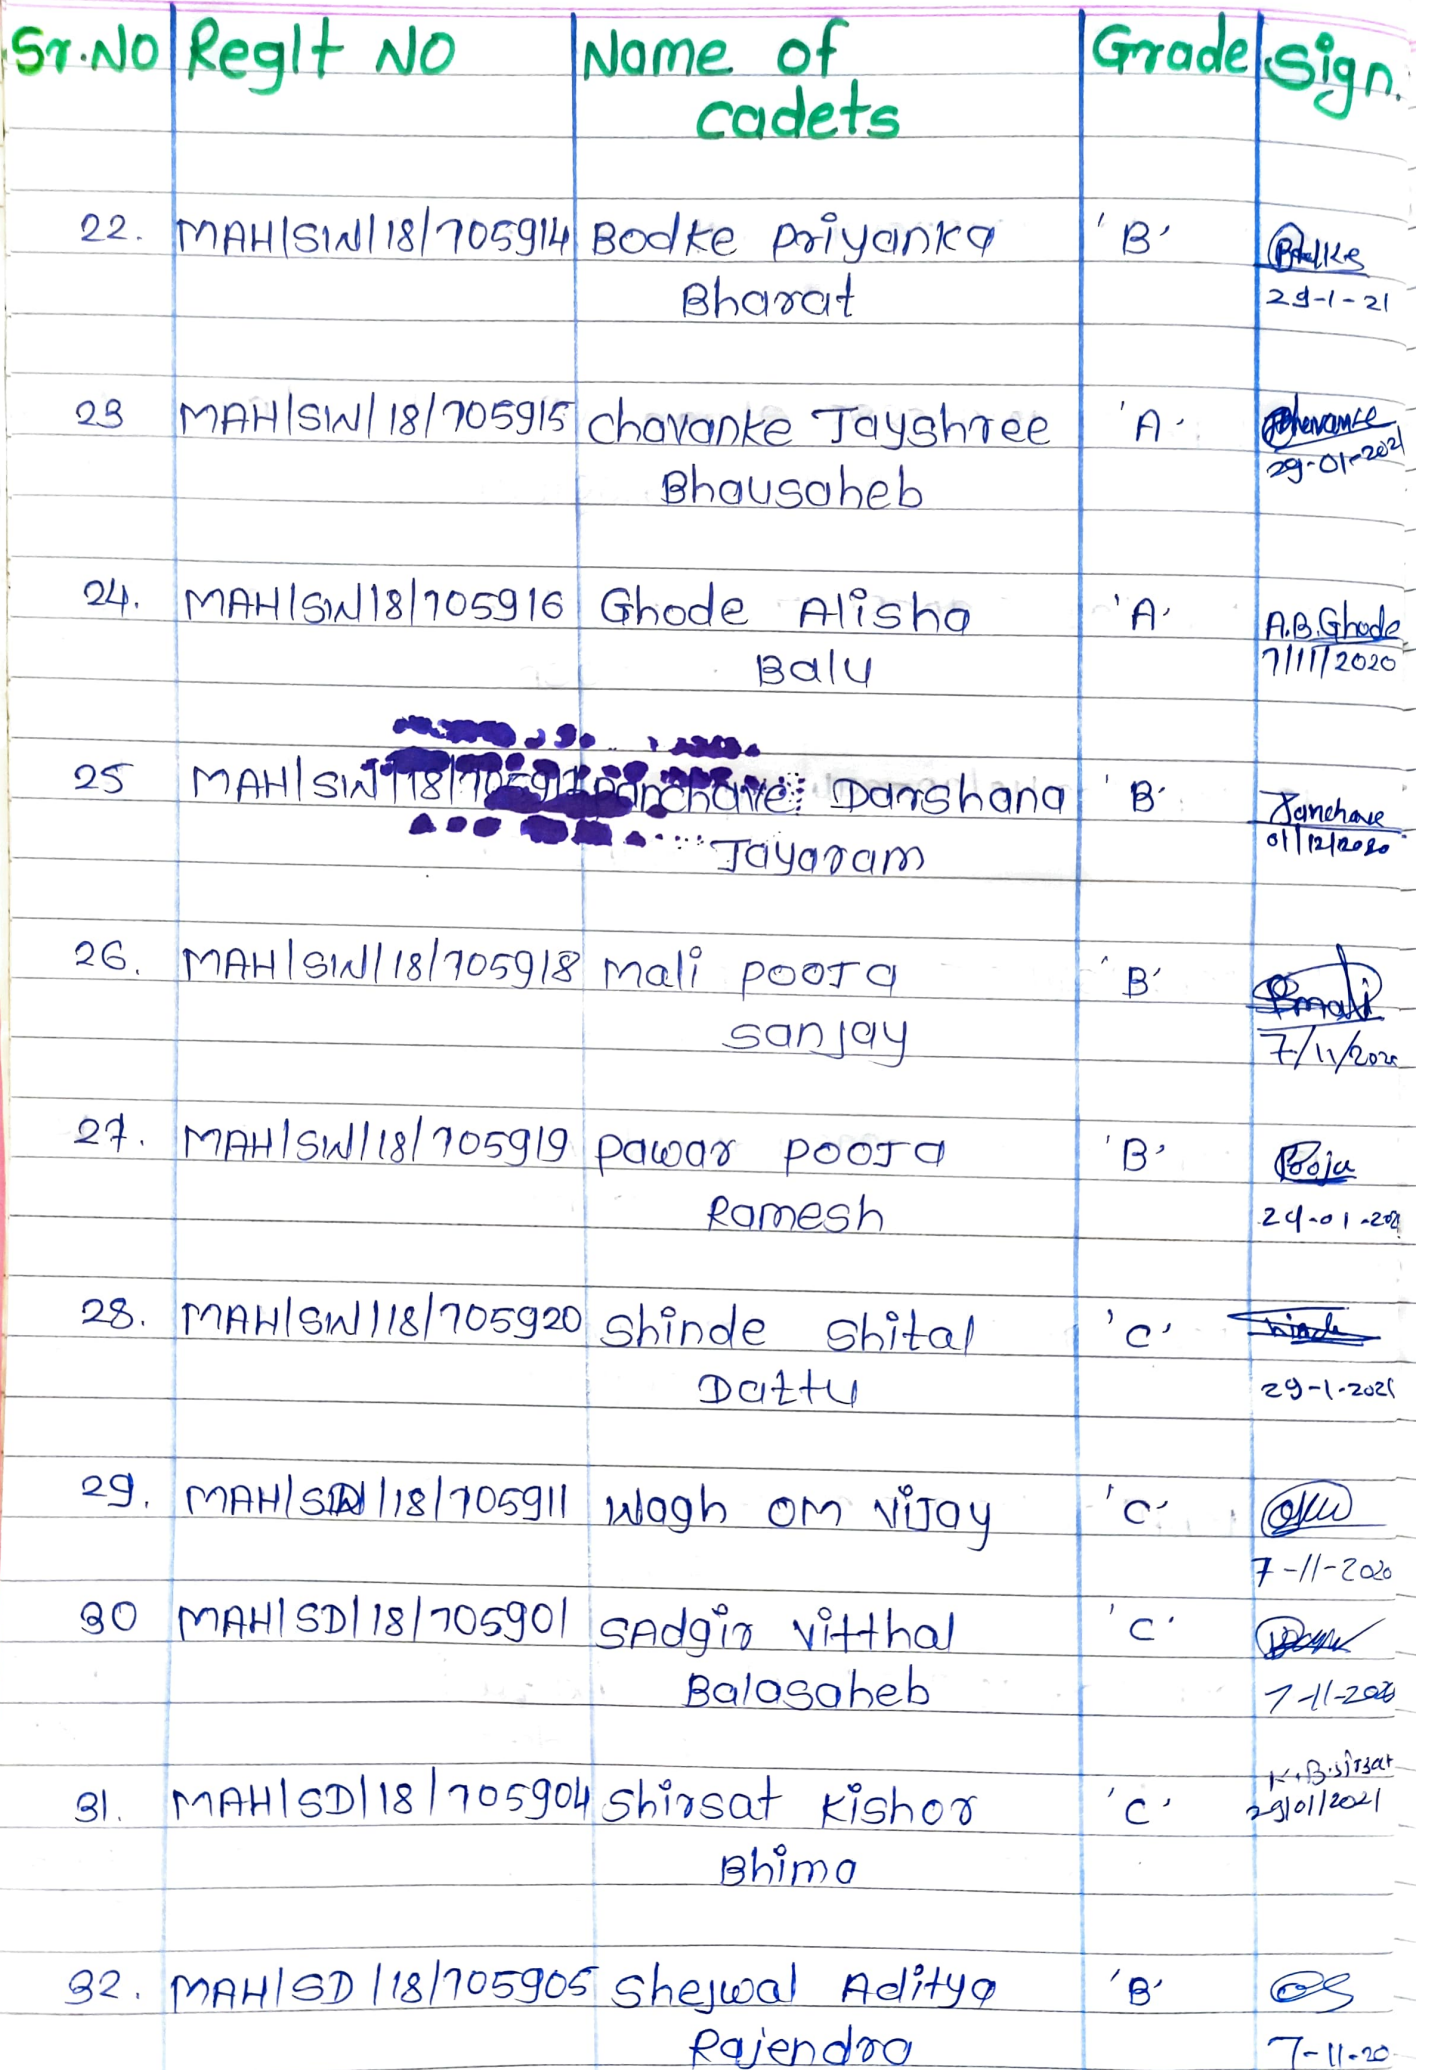 Sr.No Reglt NO Name of Grade Sign.
cadets
22. MAH/SW/18/705914 Bodke Priyanka 'B'
Bharat 29-1-21
23 MAH/SW/18/705915 Chavanke Jayshree 'A'
Bhausaheb 29-01-2021
24. MAH/SW/18/705916 Ghode Alisha 'A' A.B.Ghode
Balu 7/11/2020
25 MAH/SW/18/705917 Panchave Darshana 'B'
Jayaram 01/12/2020
26. MAH/SW/18/705918 Mali Pooja 'B' Pmali
Sanjay 7/11/2020
27. MAH/SW/18/705919 Pawar Pooja 'B' Pooja
Ramesh
28. MAH/SW/18/705920 Shinde Shital 'C'
Dattu 29-1-2021
29. MAH/SD/18/705911 Wagh Om Vijay 'C'
7-11-2020
30 MAH/SD/18/705901 SAdgir Vitthal 'C'
Balasaheb 7-11-2020
31. MAH/SD/18/705904 Shirsat Kishor 'C' K.B.sirsat
29/01/2021
Bhima
32. MAH/SD/18/705905 Shejwal Aditya 'B'
Rajendra 7-11-20